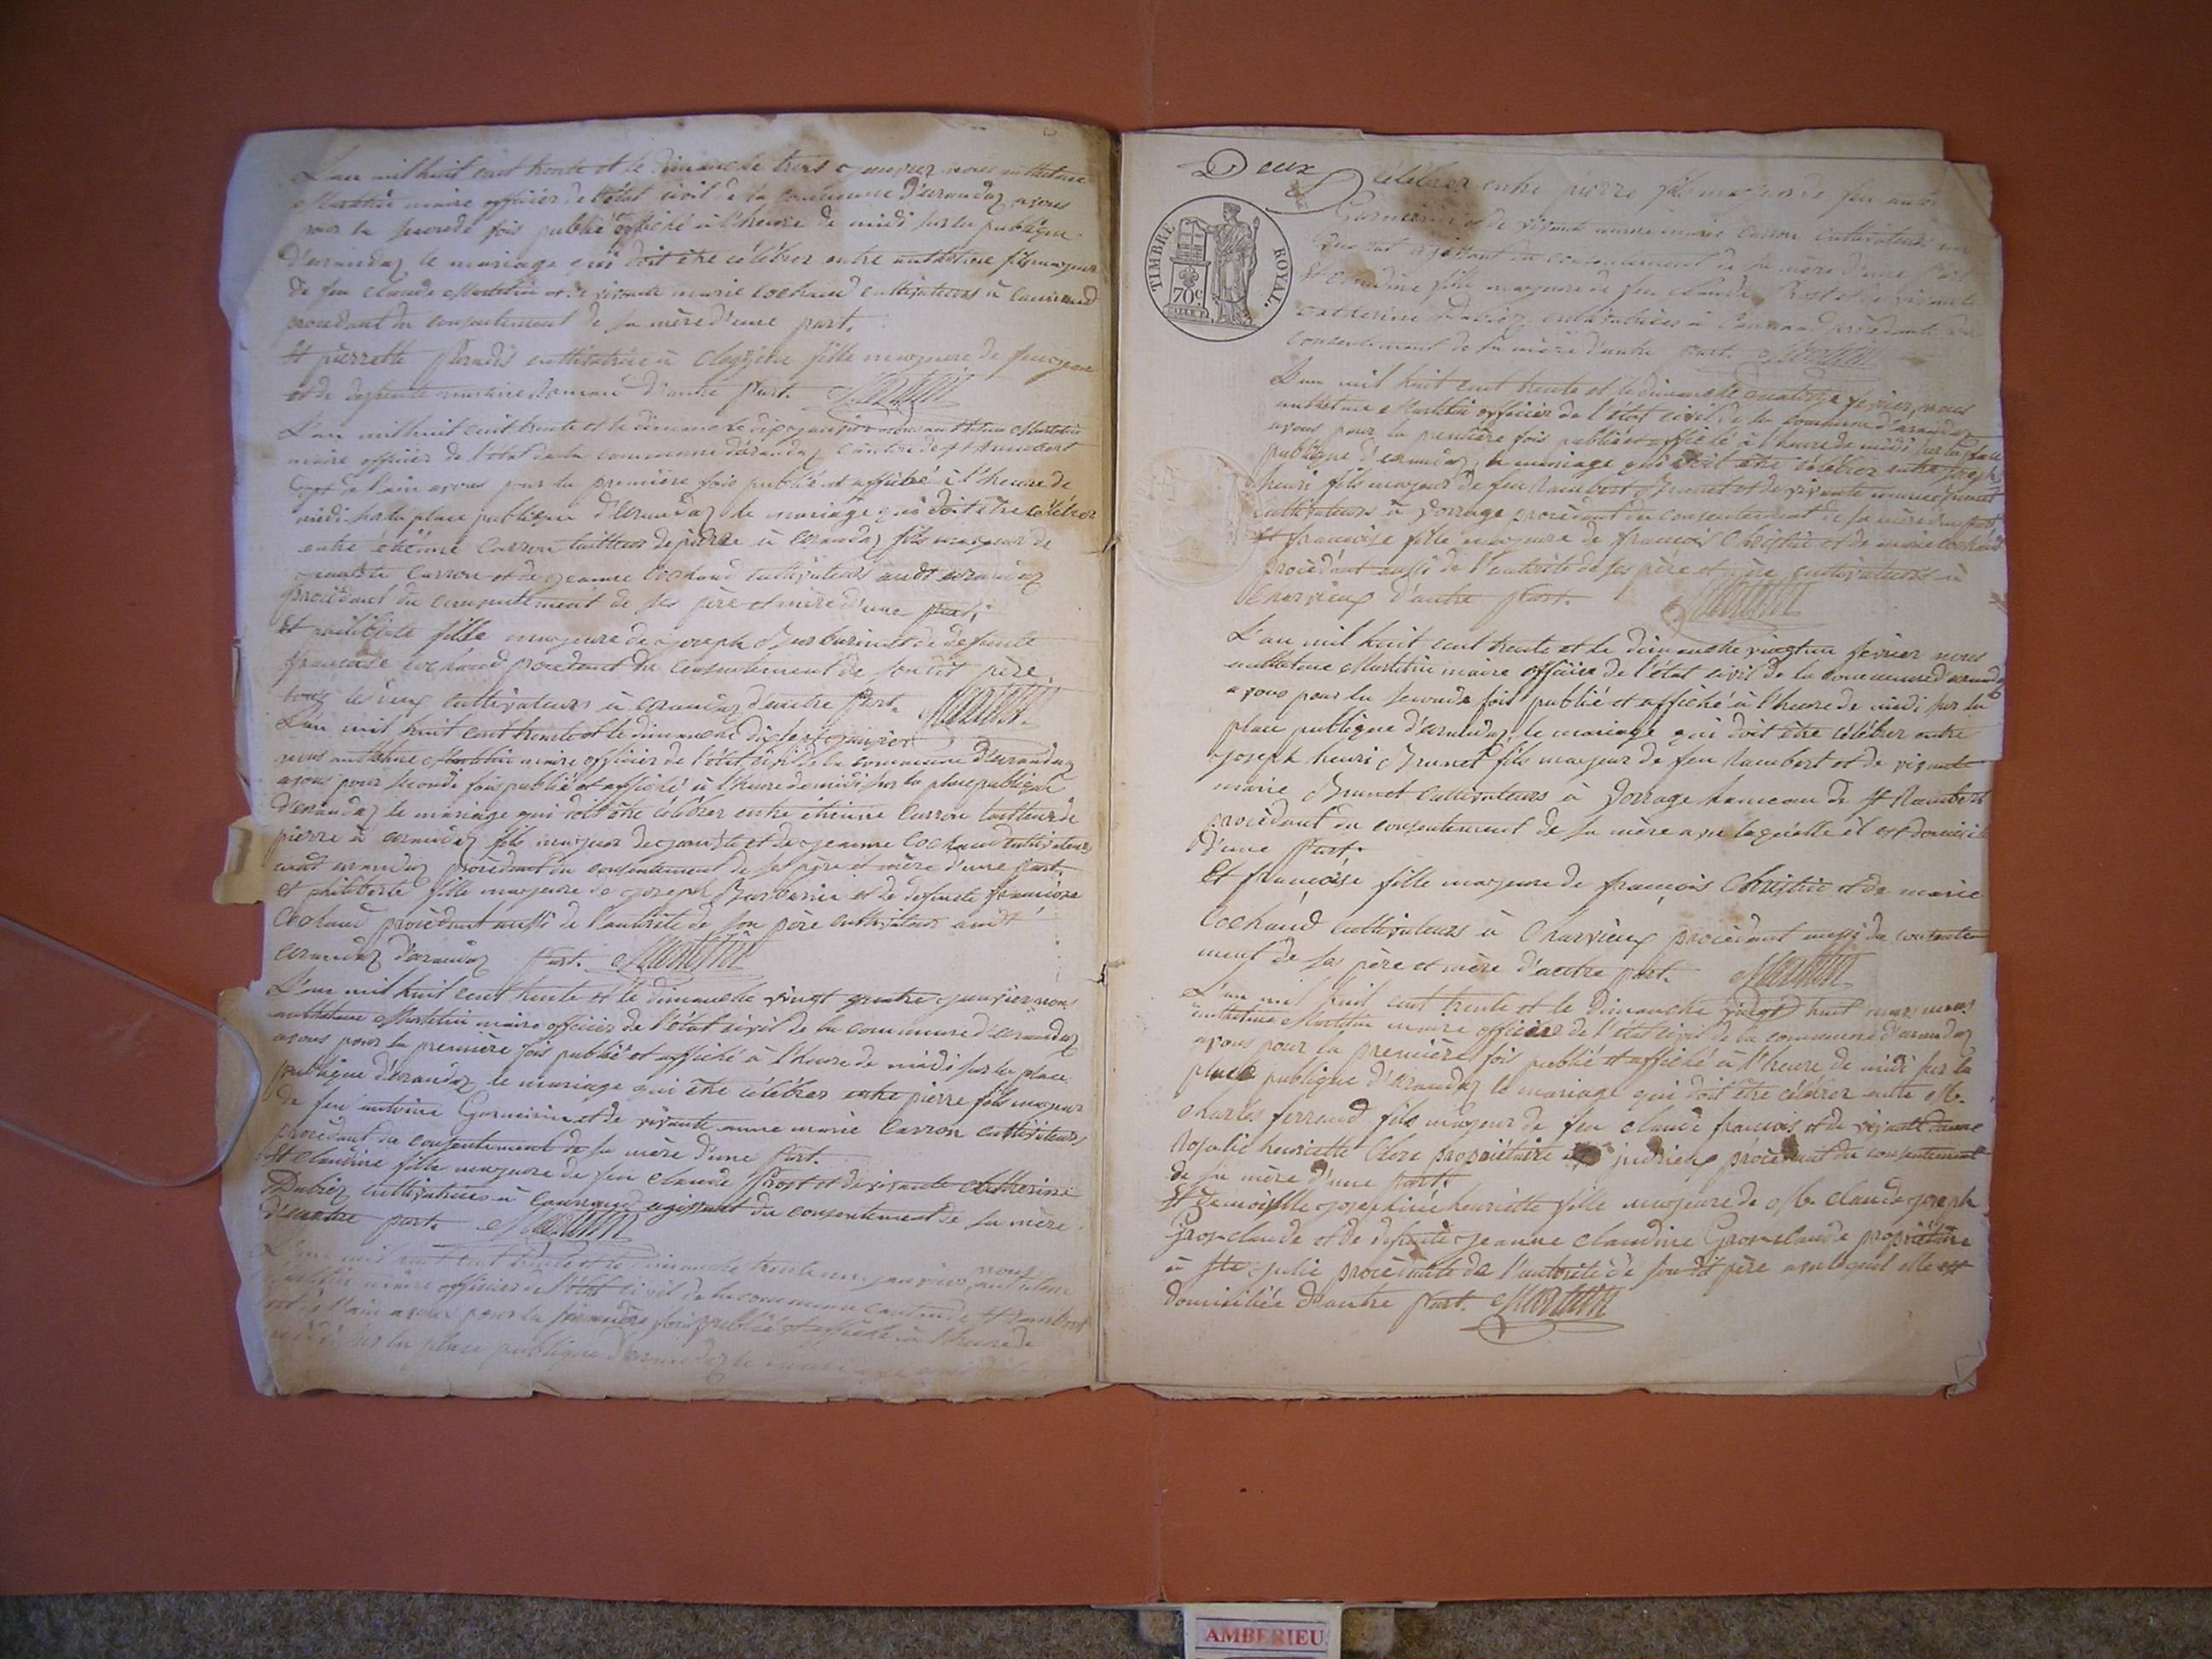 L'an mil huit cent trente et le Dimanche trois janvier nous anthelme
Martelin maire officier de l'état civil de la commune d'arandaz avons
pour la seconde fois publié et affiché à l'heure de midi sur la publique
d'arandaz le mariage qui doit être célébrer entre anthelme fils majeur
de feu claude Martelin et de vivante marie cochaud cultivateurs à
procedant du consentement de sa mère d'une part.
Et pierrette cultivatrice à fille majeure de feu jean
et de defunte d'autre part. Martelin
L'an mil huit cent trente et le dimanche dix janvier nous anthelme Martelin
maire officier de l'état de la commune d'arandaz canton de st Rambert
de l'ain avons pour la première fois publié et affiché à l'heure de
midi sur la place publique d'arandaz le mariage qui doit être célébrer
entre étienne Carron tailleur de pierre à arandaz fils majeur de
Carron et de jeanne Cochaud cultivateurs audt arandaz
procédant du consentement de ses père et mère d'une part,
Et philiberte fille majeure de joseph Barbarin et de defunte
françoise cochaud procedant du consentement de son dit père
tous les cultivateurs à arandaz d'autre part. Martelin
L'an mil huit cent trente et le dimanche dix sept janvier
nous anthelme Martelin maire officier de l'état civil de la commune d'arandaz
avons pour seconde fois publié et affiché à l'heure de midi sur la place publique
d'arandaz le mariage qui doit être célébrer entre étienne Carron tailleur de
pierre à arandaz fils majeur de et de jeanne Cochaud cultivateurs
audt arandaz procédant du consentement de ses père et mère d'une part.
et philiberte fille majeure de joseph Barbarin et de defunte françoise
Cochaud procédant aussi de l'autorité de son père cultivateurs audt
arandaz d'arandaz part. Martelin
L'an mil huit cent trente et le dimanche vingt quatre janvier nous
anthelme Martelin maire officier de l'état civil de la commune d'arandaz
avons pour la première fois publié et affiché à l'heure de midi sur la place
publique d'arandaz le mariage qui être célébrer entre pierre fils majeur
de feu antoine Garmeirin et de vivante anne marie Carron cultivateurs
procédant du consentement de sa mère d'une part.
Et claudine fille majeure de feu claude Prost et de vivante catherine
Dubiez cultivatrices à agissant du consentement de sa mère
d'autre part. Martelin
L'an mil huit cent trente et le dimanche trente un janvier nous anthelme
Martelin maire officier de l'état civil de la commune canton de st Rambert
de l'ain avons pour la fois publié et affiché à l'heure de
midi sur la place publique d'arandaz le mariage
Deux
célébrer entre pierre fils majeur de feu
Garmeirin et de vivante anne marie Carron cultivateurs
agissant du consentement de sa mère d'une part
Et claudine fille majeure de feu claude Prost et de vivante
catherine Dubiez cultivatrices à procédante du
consentement de sa mère d'autre part. Martelin
TIMBRE ROYAL.
70c
L'an mil huit cent trente et le dimanche quatorze fevrier, nous
anthelme Martelin officier de l'état civil de la commune d'arandaz
avons pour la première fois publié et affiché à l'heure de midi sur la place
publique d'arandaz, le mariage qui doit être célébrer entre joseph
henri fils majeur de feu Rambert Brunet et de vivante marie Brunet
cultivateurs à Dorvage procédant du consentement de sa mère d'une part
Et françoise fille majeure de françois Christin et de marie cochaud
procédant aussi de l'autorité de ses père et mère cultivateurs à
Charvieux d'autre part. Martelin
L'an mil huit cent trente et le dimanche vingt un fevrier nous
anthelme Martelin maire officier de l'état civil de la commune d'arandaz
avons pour la seconde fois publié et affiché à l'heure de midi sur la
place publique d'arandaz, le mariage qui doit être célébrer entre
joseph henri Brunet fils majeur de feu Rambert et de vivante
marie Brunet cultivateurs à Dorvage hameau de St Rambert
procédant du consentement de sa mère avec laquelle il est domicilié
d'une part.
Et françoise fille majeure de françois Christin et de marie
Cochaud cultivateurs à Charvieux procédant aussi du consente
ment de ses père et mère d'autre part. Martelin
L'an mil huit cent trente et le Dimanche vingt huit mars nous
anthelme Martelin maire officier de l'état civil de la commune d'arandaz
avons pour la première fois publié et affiché à l'heure de midi sur la
place publique d'arandaz le mariage qui doit être célébrer entre Mr.
charles ferrand fils majeur de feu claude françois et de vivante dame
Rosalie henriette propriétaire à jujurieux procédant du consentement
de sa mère d'une part.
Et Demoiselle josephine henriette fille majeure de Mr. claude joseph
Grosclaude et de defunte jeanne claudine Grosclaude propriétaire
à Ste julie procédante de l'autorité de son dit père avec lequel elle est
domiciliée d'autre part. Martelin
AMBERIEU